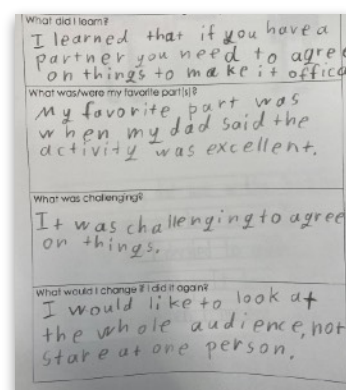 What did I learn?
I learned that if you have a
partner you need to agree
on things to make it offica
What was/were my favorite part(s)?
My favorite part was
when my dad said the
activity was excellent.
What was challenging?
It was challenging to agree
on things.
What would I change if I did it again?
I would like to look at
the whole audience, not
stare at one person.